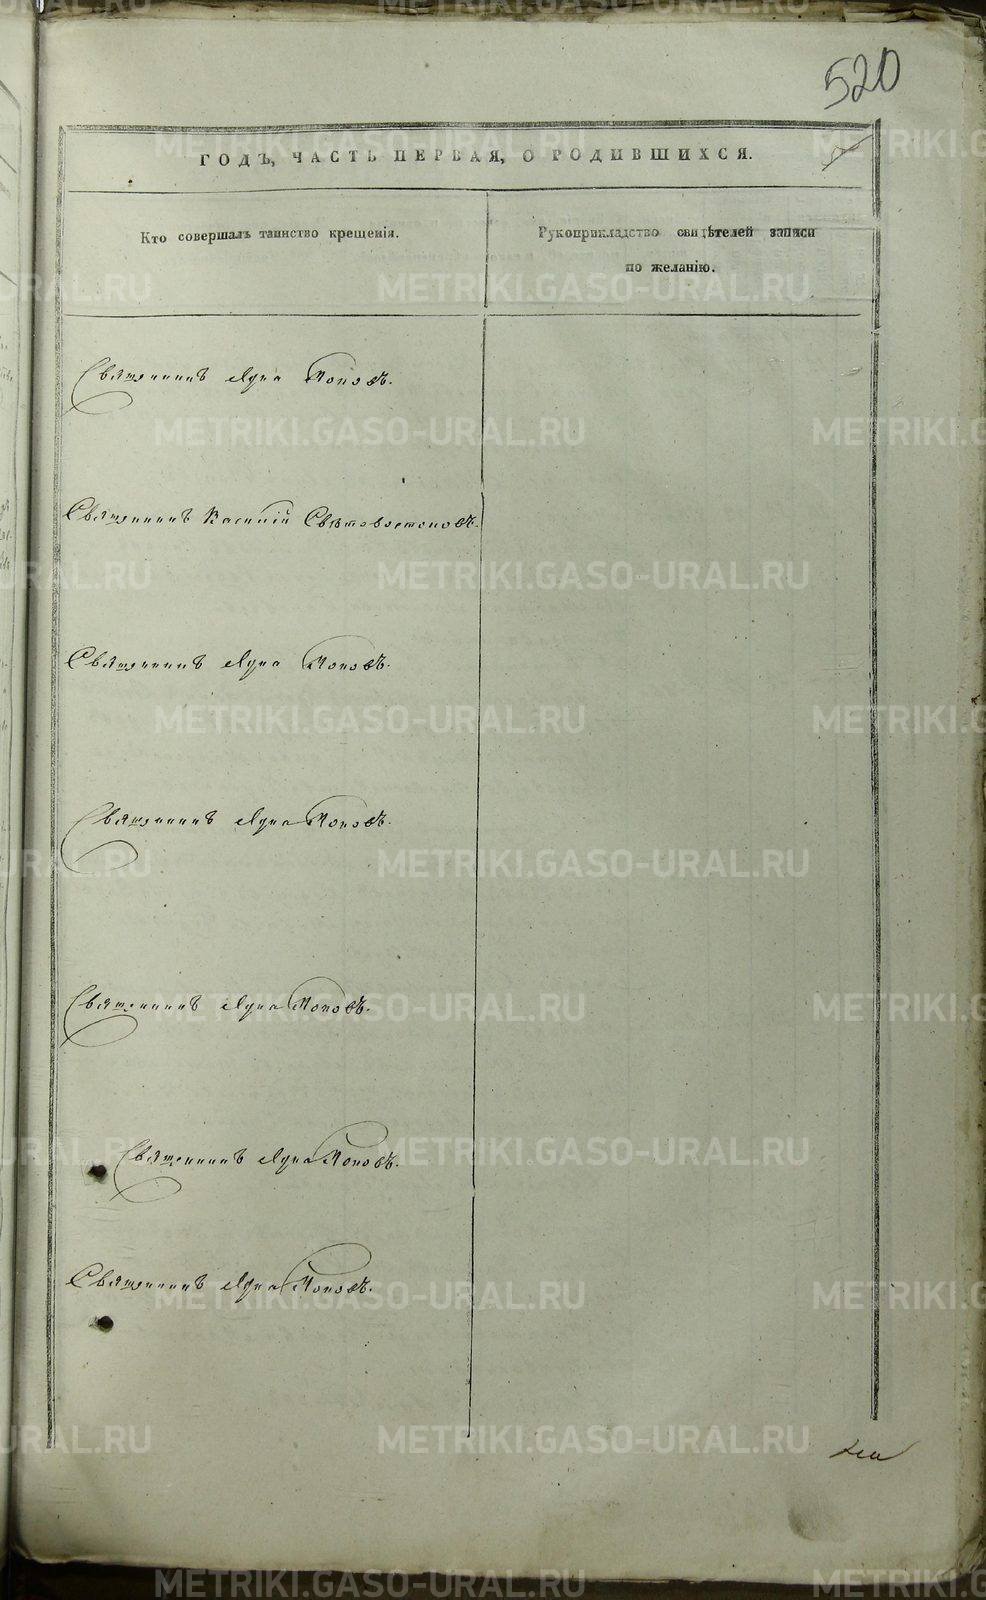 520
ГОДЪ, ЧАСТЬ ПЕРВАЯ, О РОДИВШИХСЯ.
Кто совершалъ таинство крещенія.
Рукоприкладство свидѣтелей записи
по желанію.
Священникъ Лука Поповъ.
Священникъ Василій Святовостоковъ.
Священникъ Лука Поповъ.
Священникъ Лука Поповъ.
Священникъ Лука Поповъ.
Священникъ Лука Поповъ.
Священникъ Лука Поповъ.
METRIKI.GASO-URAL.RU